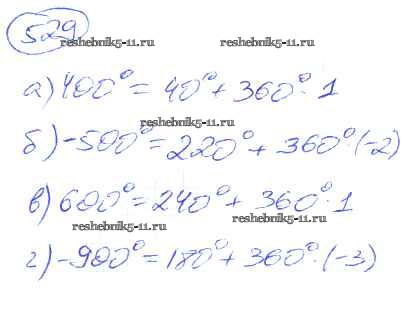 529
reshebnik5-11.ru reshebnik5-11.ru
а) 400° = 40° + 360° · 1
reshebnik5-11.ru
б) -500° = 220° + 360° · (-2)
в) 600° = 240° + 360° · 1
reshebnik5-11.ru reshebnik5-11.ru
г) -900° = 180° + 360° · (-3)